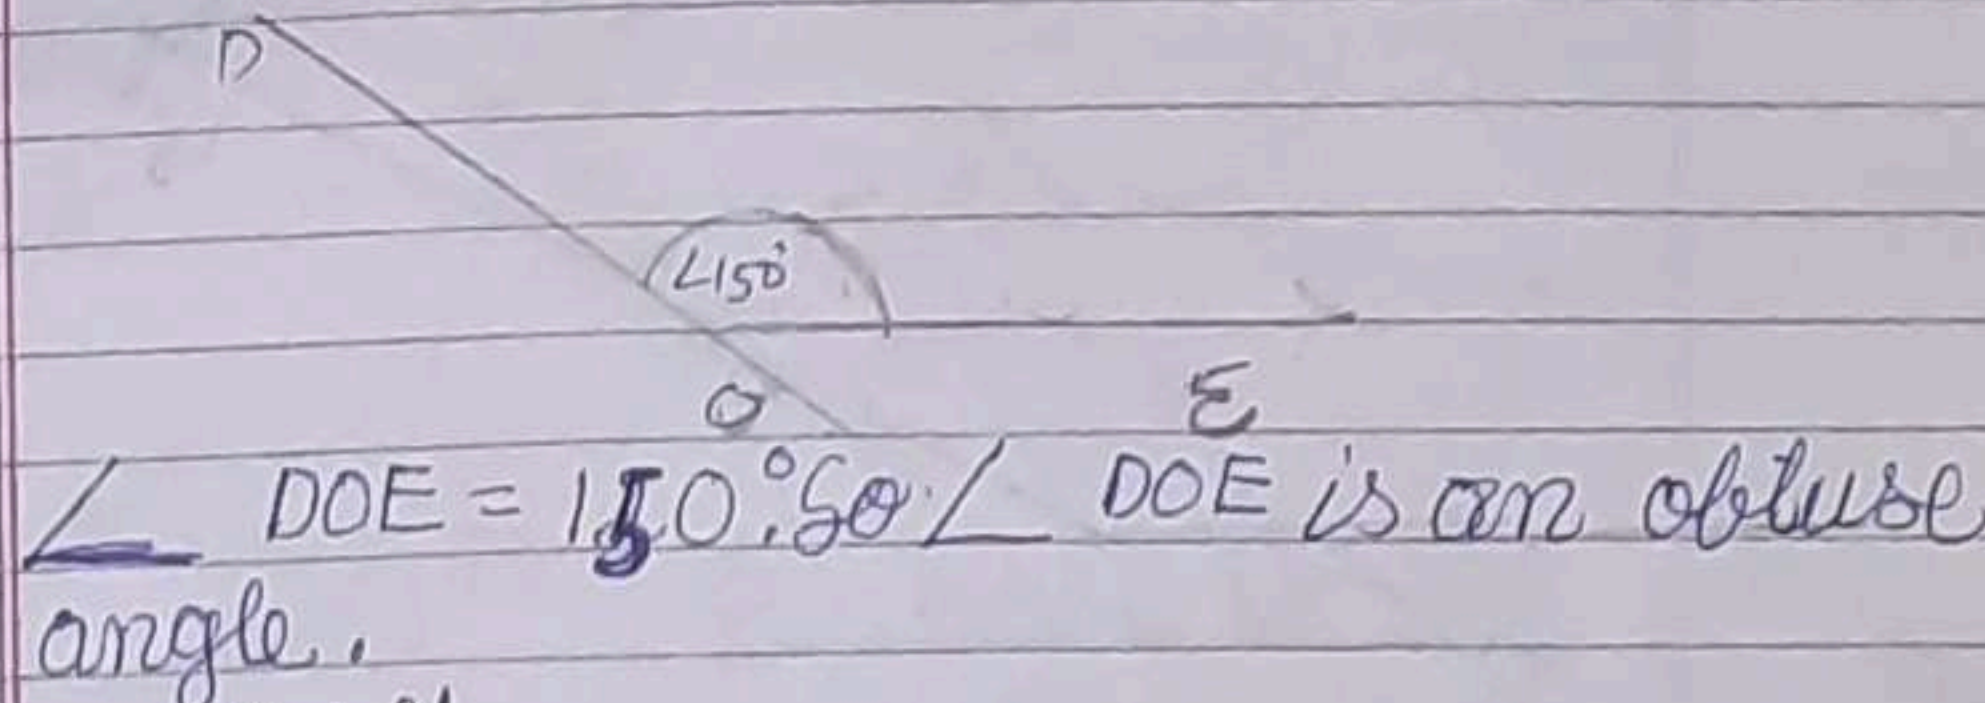 D
∠150°
O
E
∠ DOE = 150°. So ∠ DOE is an obtuse
angle.